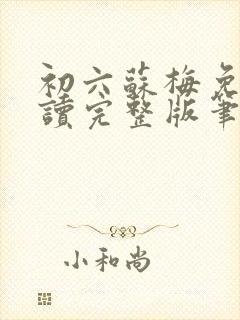 初六蘇梅免
讀完整版筆
小和尚